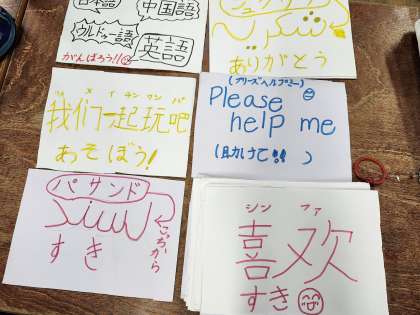 日本語
中国語
ウルドゥー語
英語
がんばろう!!
ありがとう
我们一起玩吧
あっそぼう!
(プリーズヘルプミー)
Please
help me
(助けて!! )
パサンド
こっちから
すき
シン ファ
喜欢
すき